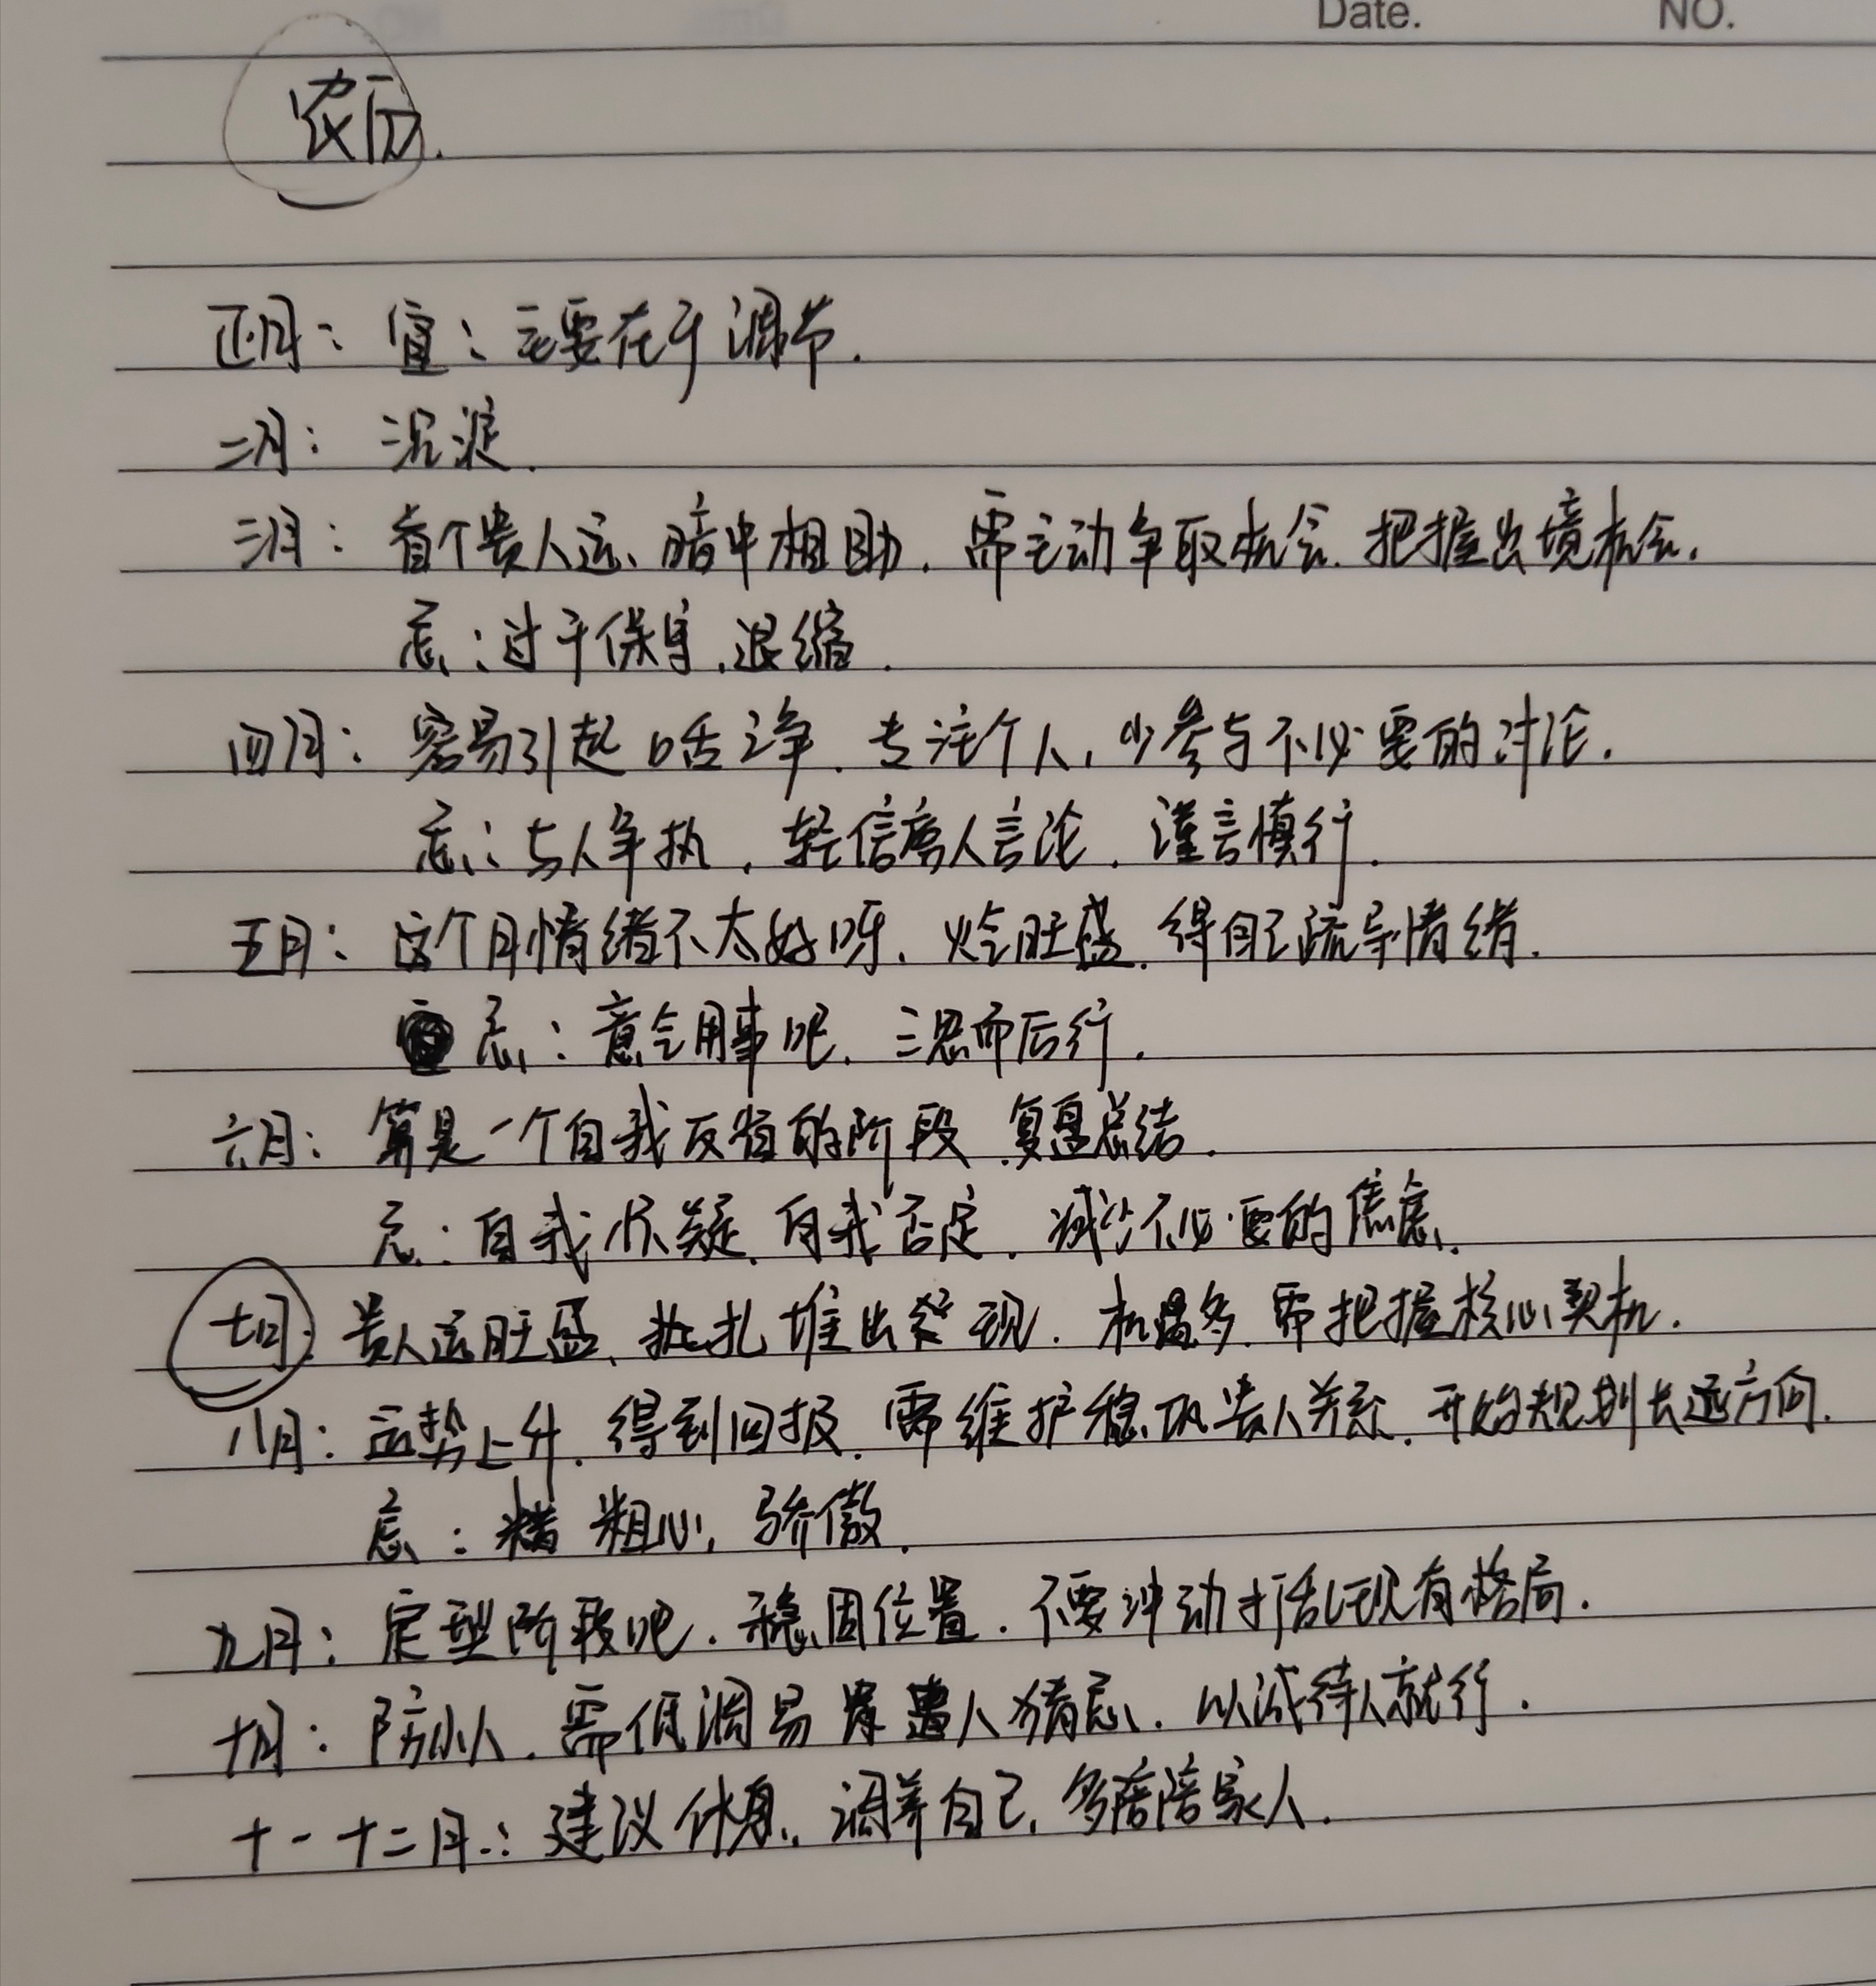 Date. NO.
农历.
正月: 宜: 主要在于调节.
二月: 沉淀.
三月: 有个贵人运、暗中相助. 需主动争取机会. 把握出境机会.
忌: 过于保守. 退缩.
四月: 容易引起口舌之争. 专注个人, 少参与不必要的讨论.
忌: 与人争执, 轻信旁人言论, 谨言慎行.
五月: 这个月情绪不太好呀. 火气旺盛. 得自己疏导情绪.
忌: 意气用事吧. 三思而后行.
六月: 算是一个自我反省的阶段. 复盘总结.
忌: 自我怀疑. 自我否定. 减少不必要的焦虑.
七月: 贵人运旺盛、扎堆出现. 机遇多. 需把握核心契机.
八月: 运势上升. 得到回报. 需维护稳固贵人关系. 开始规划长远方向.
忌: 粗心, 骄傲.
九月: 定型阶段吧. 稳固位置. 不要冲动打乱现有格局.
十月: 防小人. 需低调易遭人猜忌. 以诚待人就行.
十一十二月: 建议休息. 调养自己. 多陪陪家人.